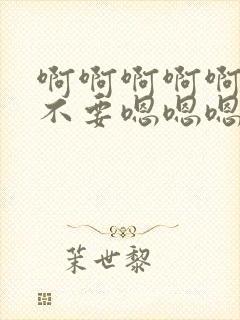 啊啊啊啊啊
不要嗯嗯嗯
茉世黎